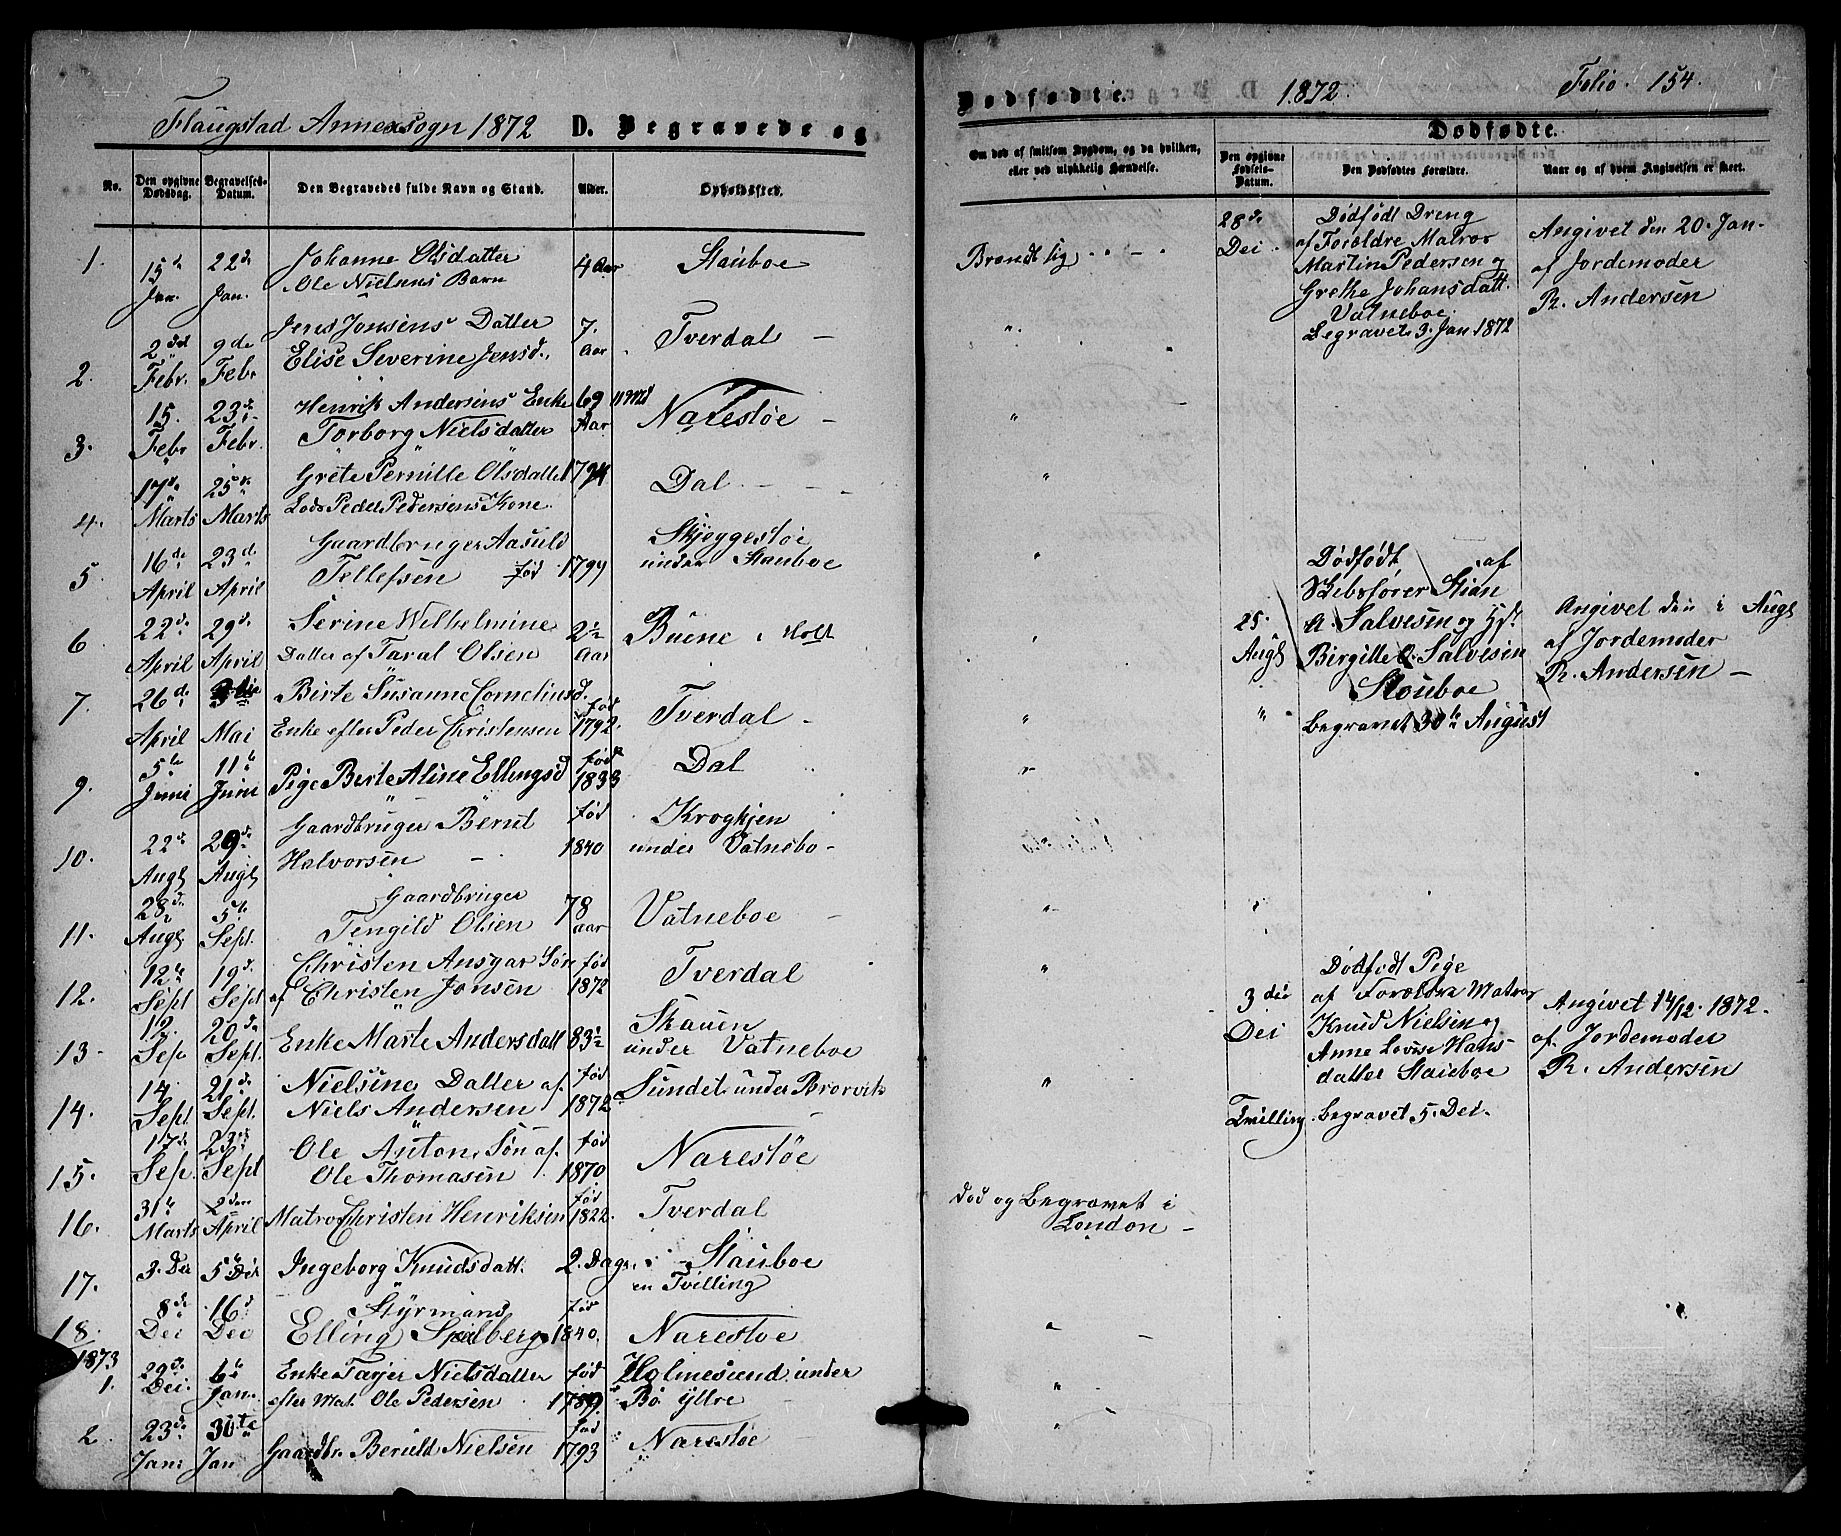 Flaugstad Annexsogn 1872 D. Begravede og
No.
Den opgivne Dødsdag.
Begravelses-Datum.
Den Begravedes fulde Navn og Stand.
Alder.
Opholdssted.
1. 15de Jan. 22de Jan. Johanne Olsdatter 4 Aar Stauboe
Ole Nielsens Barn
Jens Jensens Datter 7. Aar Tverdal
2. 2den Febr. 9de Febr Elise Severine Jensd.
Henrik Andersens Enke 69 Aar Narestøe
3. 15. Febr 23de Febr. Torborg Nielsdatter
Grete Pernille Olsdatter 1794 Dal
4. 17de Marts 25de Marts Lods Peder Pedersens Kone
Gaardbruger Aasuld Skjeggestøe
5 16de April 23de April Tellefsen fød 1799 under Stauboe
Serine Wilhelmine 2½ Aar Buene i Holt
6 22de April 29de April Datter af Taral Olsen
7. 26de April Mai Birte Susanne Corneliusd. fød Tverdal
Enke efter Peder Christensen 1792.
9. 5te Juni 11te Juni Pige Berte Aline Ellingsd fød 1833 Dal
Gaardbruger Bernt fød Krogkjen
10. 22de Augt 29de Augt Halvorsen 1840 under Vatnebo
Gaardbruger
11. 28de Augt 5te Sept. Tengild Olsen 78 aar Vatneboe
Christen Ansgar Søn fød Tverdal
12. 12te Sept 19de Sept af Christen Jonsen 1872
13. 12. Sep 20de Sept. Enke Marte Andersdatt 83½ Skauen
under Vatneboe
Nielsine Datter af fød Sundet under Borøvik
14. 14 Sept 21de Sept. Niels Andersen 1872
Ole Anton, Søn af fød Narestøe
15. 17de Sep. 23de Sept Ole Thomasen 1870
16. 31te Marts 2den April Matros Christen Henriksen fød 1822. Tverdal
17. 3. Dei 5te Dei Ingeborg Knudsdatt. 2. Dage Stauboe
en Tvilling
Styrmand fød
18. 8de Dei 16d Dei Elling Spilberg 1840. Narestøe
1873
1. 29de Dei. 6te Jan. Enke Tarjer Nielsdatter fød Holmesund under
efter Mat. Ole Pedersen Bø ÿttre
2 23de Jan: 30te Jan Gaardbr. Beruld Nielsen fød 1793 Narestøe
Dødfødte. 1872. Folio. 154.
Dødfødte.
Om død af smitsom Sygdom, og da hvilken,
eller ved ulykkelig Hændelse.
Den opgivne Fødsels-Datum.
Den Dødfødtes Forældre.
Naar og af hvem Angivelsen er skeet.
28de Dødfødt Dreng
Brøndt sig Dei af Forældre Matros Angivet den 20. Jan.
Martin Pedersen og af Jordemoder
Grethe Johansdatt. R. Andersen
Vatneboe.
Begravet 3. Jan 1872
Dødfødt, af
Skibsfører Stian
25. A. Salvesen og Hst Angivet den i Augt
Augt Birgitte O. Salvesen af Jordemoder
Stauboe R. Andersen
Begravet 30te August
Dødfødt Pige
3die af Forældre Matros Angivet 14/12. 1872.
Dei Knud Nielsen og af Jordemoder
Anne Lovise Hans- R. Andersen
datter Stauboe
Tvilling Begravet 5. Dei.
Død og Begravet i
London